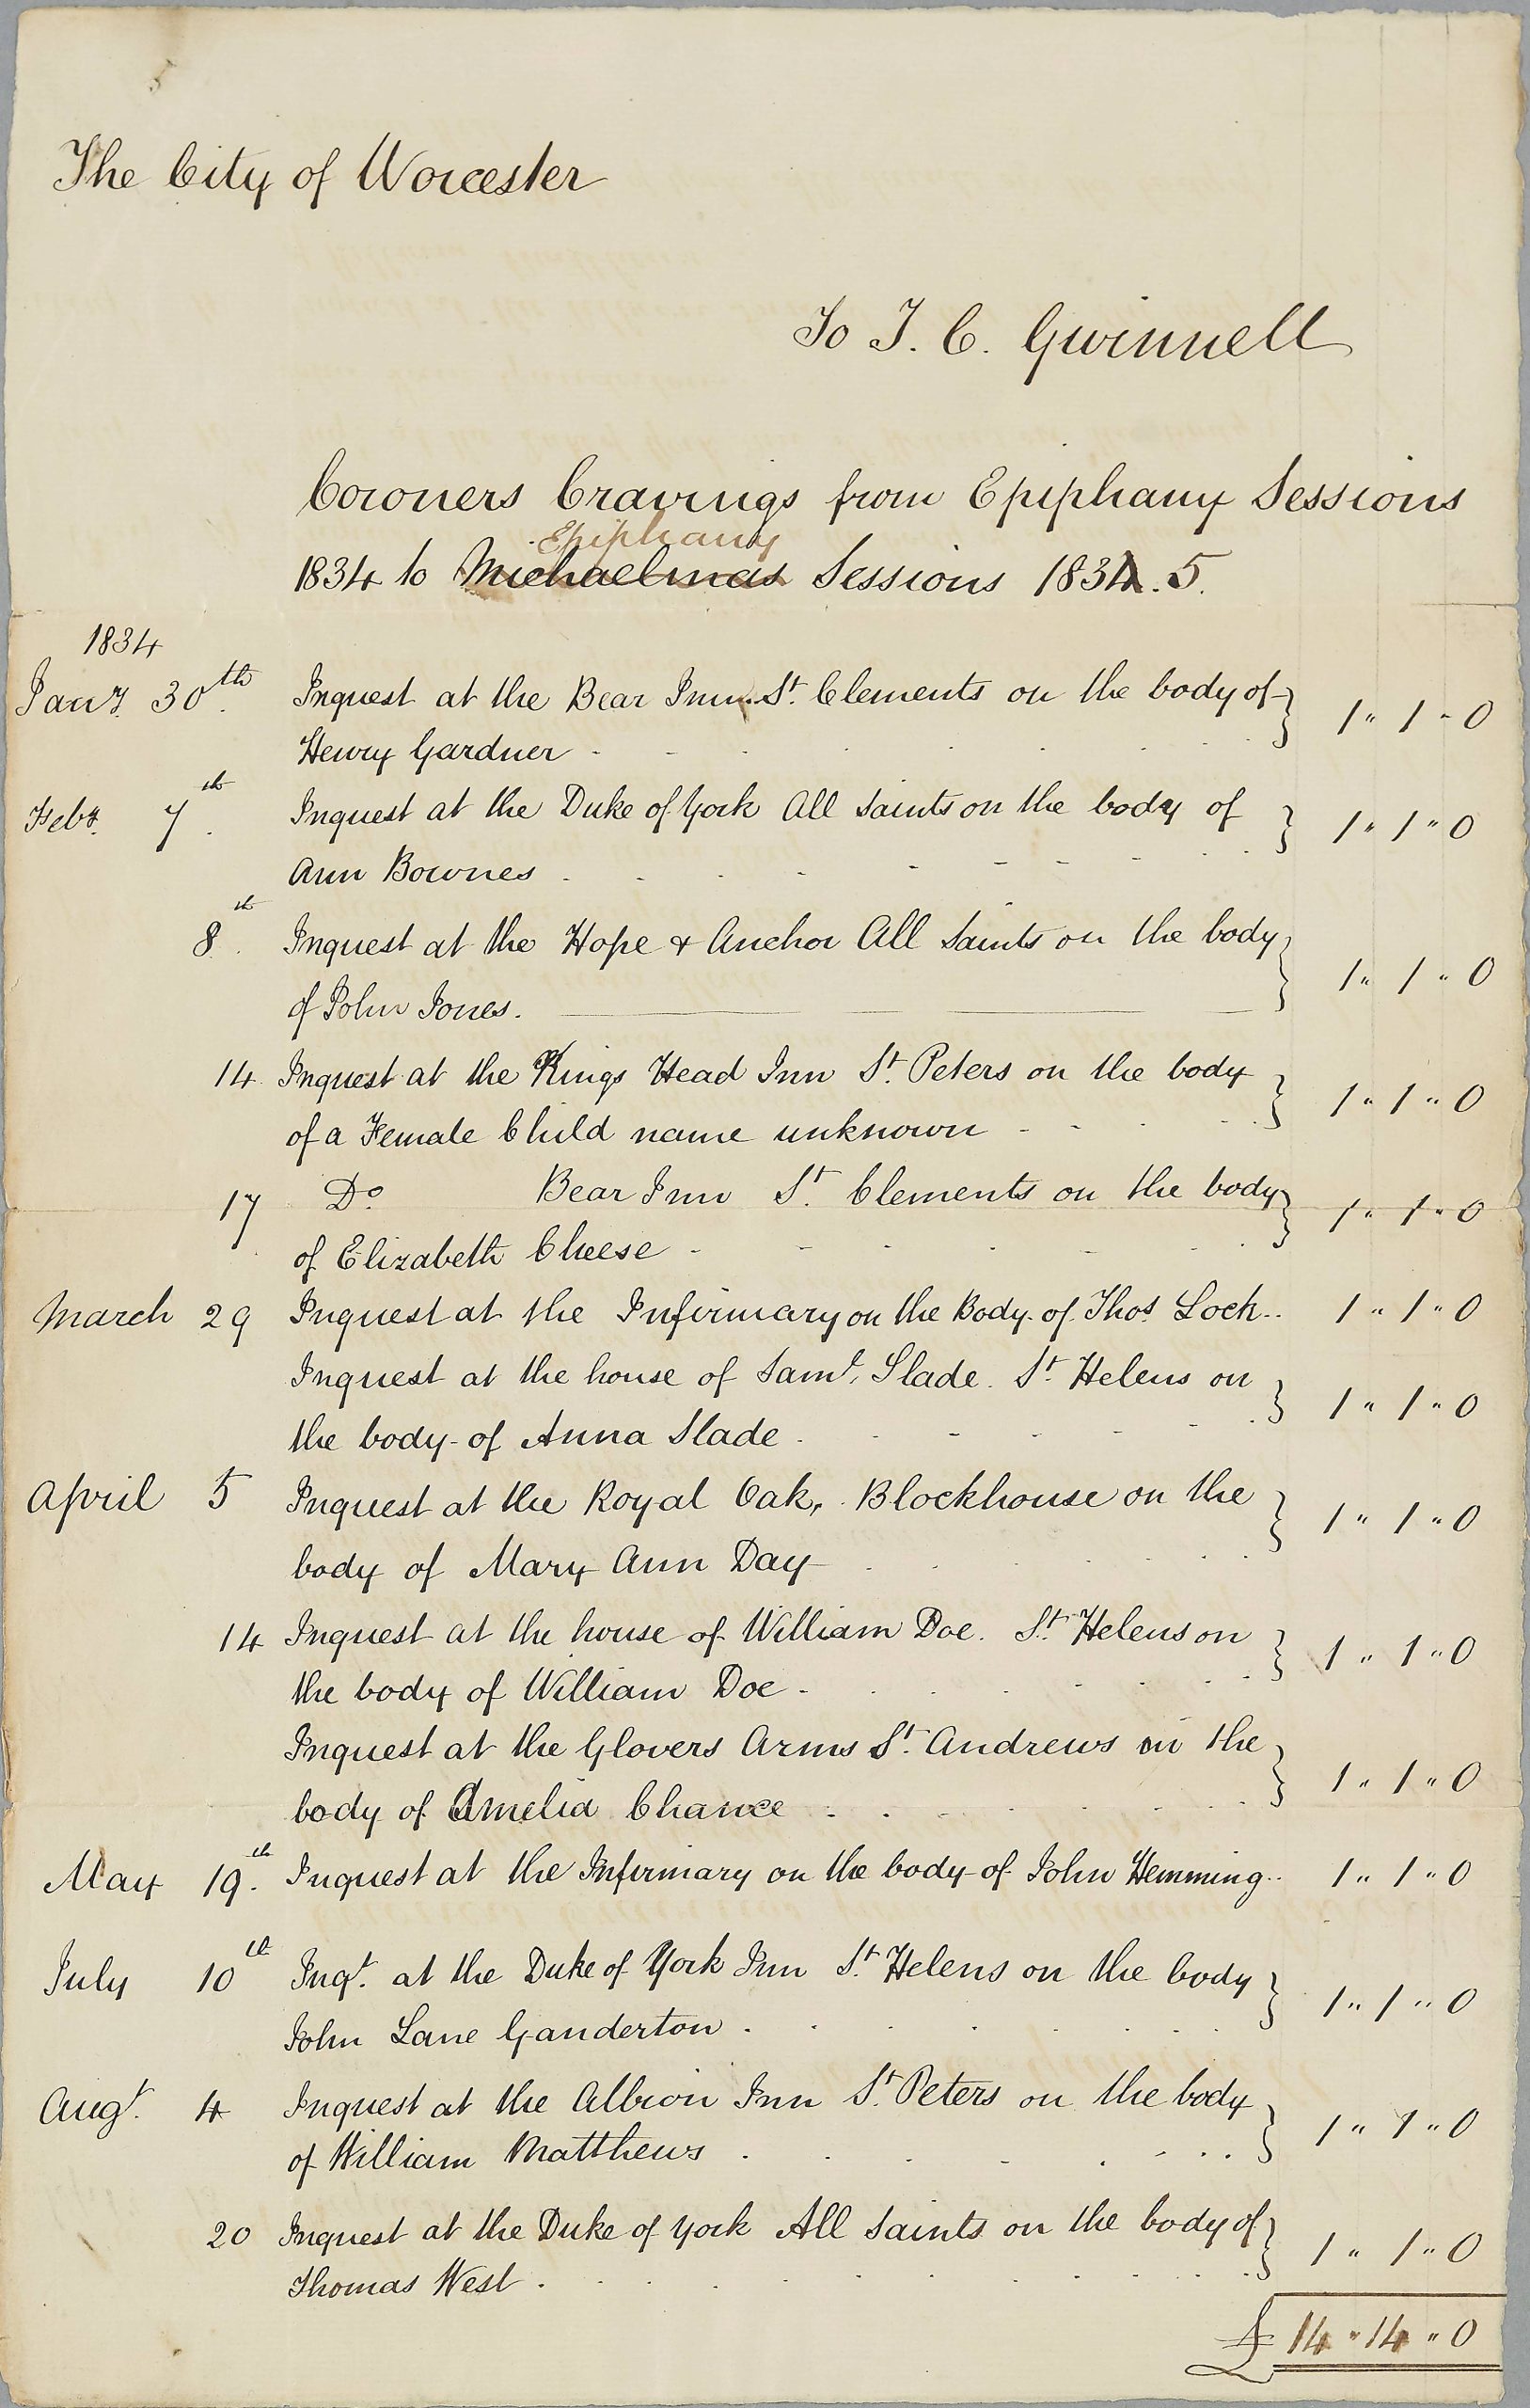 The City of Worcester
To J. C. Gwinnell
Coroners Cravings from Epiphany Sessions
Epiphany
1834 to Michaelmas Sessions 1834. 5.
1834
Jany. 30th. Inquest at the Bear Inn. St. Clements on the body of } 1 " 1 " 0
Henry Gardner
Feby. 7th. Inquest at the Duke of York All Saints on the body of } 1 " 1 " 0
Ann Bownes
8th. Inquest at the Hope & Anchor All Saints on the body } 1 " 1 " 0
of John Jones.
14 Inquest at the Kings Head Inn St. Peters on the body } 1 " 1 " 0
of a Female Child name unknown
17 Do. Bear Inn St. Clements on the body } 1 " 1 " 0
of Elizabeth Cheese
March 29 Inquest at the Infirmary on the Body of Thos. Lock.. 1 " 1 " 0
Inquest at the house of Saml. Slade. St. Helens on } 1 " 1 " 0
the body of Anna Slade
April 5 Inquest at the Royal Oak, Blockhouse on the } 1 " 1 " 0
body of Mary Ann Day
14 Inquest at the house of William Doe. St. Helens on } 1 " 1 " 0
the body of William Doe
Inquest at the Glovers Arms St. Andrews on the } 1 " 1 " 0
body of Amelia Chance
May 19th. Inquest at the Infirmary on the body of John Hemming.. 1 " 1 " 0
July 10th Inqt. at the Duke of York Inn St. Helens on the body } 1 " 1 " 0
John Lane Ganderton
Augt. 4 Inquest at the Albion Inn St. Peters on the body } 1 " 1 " 0
of William Matthews
20 Inquest at the Duke of York All Saints on the body of } 1 " 1 " 0
Thomas West
£ 14 " 14 " 0